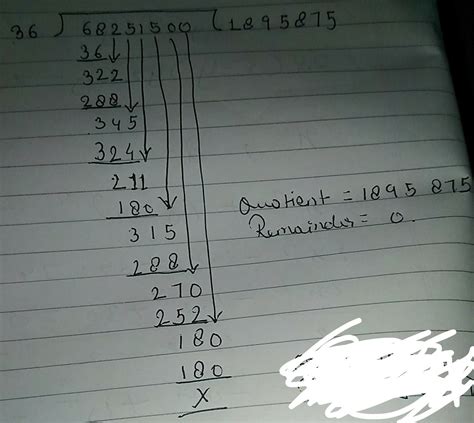 36 ) 68251500 ( 1895875
36
322
288
345
324
211
180
Quotient = 1895 875
315
Remainder = 0.
288
270
252
180
180
x